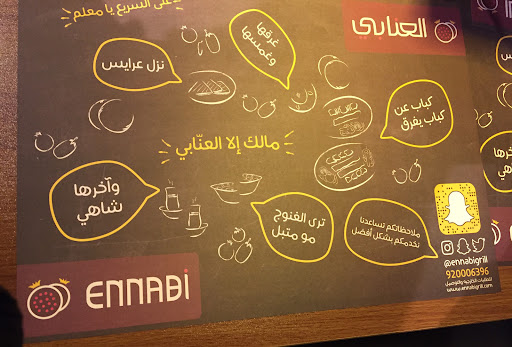 على السريع يا معلم
العنابي
غرقها
وغمسها
نزل عرايس
كباب عن
كباب يفرق
مالك إلا العنّابي
وآخرها
شاهي
ترى الغنوج
مو متبل
ملاحظاتكم تساعدنا
نخدمكم بشكل أفضل
@ennabigrill
920006396
للطلبات الخارجية والتوصيل
www.ennabigrill.com
ENNABi